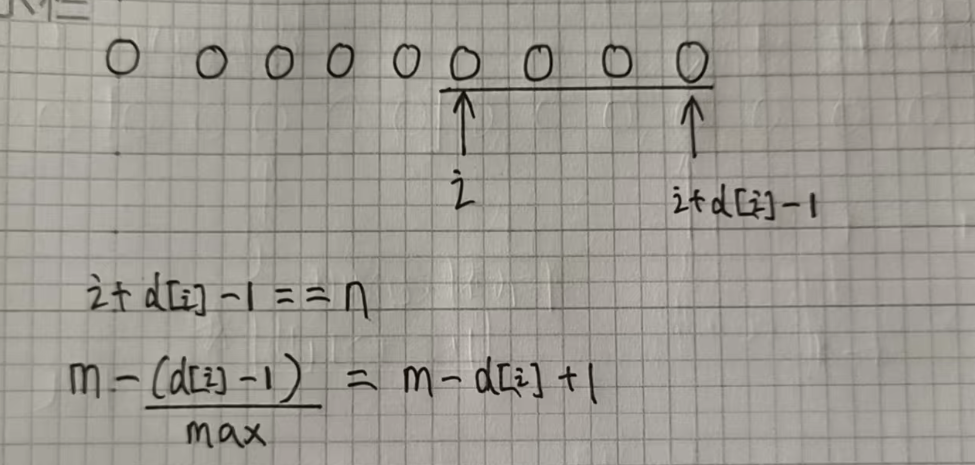 O O O O O O O O O
i
i+d[i]-1
i+d[i]-1==n
m-(d[i]-1) = m-d[i]+1
max